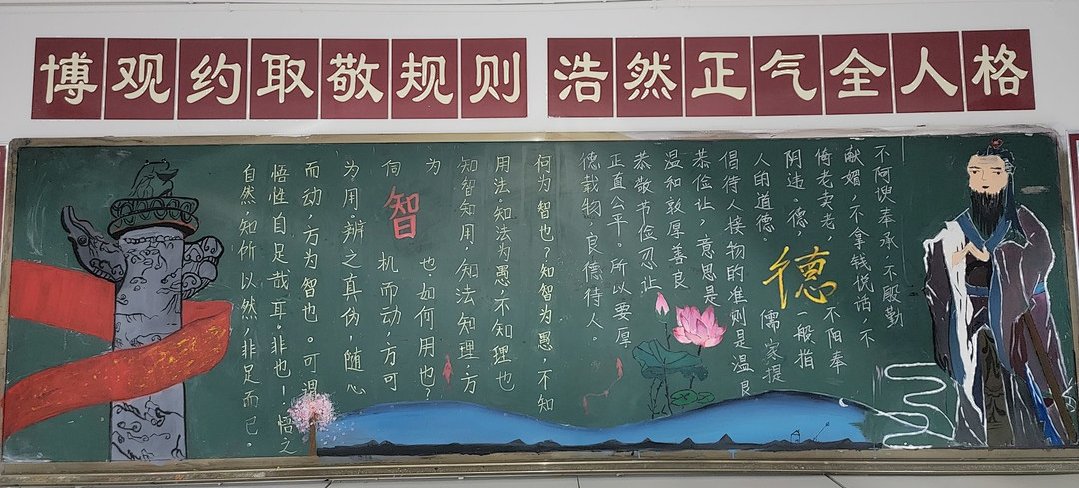 博观约取敬规则 浩然正气全人格
不阿谀奉承,不殷勤
献媚,不拿钱说话,不
倚老卖老,不阳奉
阴违。德,一般指
人的道德。儒家提
倡待人接物的准则是温良
恭俭让,意思是
温和敦厚善良
恭敬节俭忍让
正直公平。所以要厚
德载物,良德待人。
德
何为智也?知智为愚,不知
用法。知法为愚,不知理也
知智知用,知法知理,方
为智也。如何用也?
伺机而动,方可
为用,辨之真伪,随心
而动,方为智也。可谓
悟性自足哉耳。非也!悟之
自然,知所以然,非足而已。